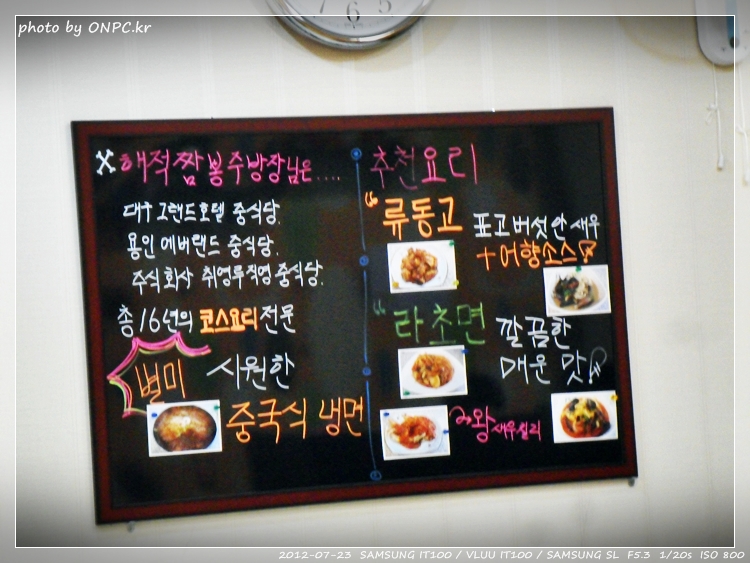 photo by ONPC.kr
6
해적짬봉주방장님은....
대구 그랜드호텔 중식당.
용인 에버랜드 중식당.
주식회사 취영루직영 중식당.
총16년의 코스요리전문
별미 시원한
중국식 냉면
추천요리
"류동고 표고버섯안 새우
+어향소스
"라초면 깔끔한
매운 맛
왕새우칠리
2012-07-23 SAMSUNG IT100 / VLUU IT100 / SAMSUNG SL F5.3 1/20s ISO 800